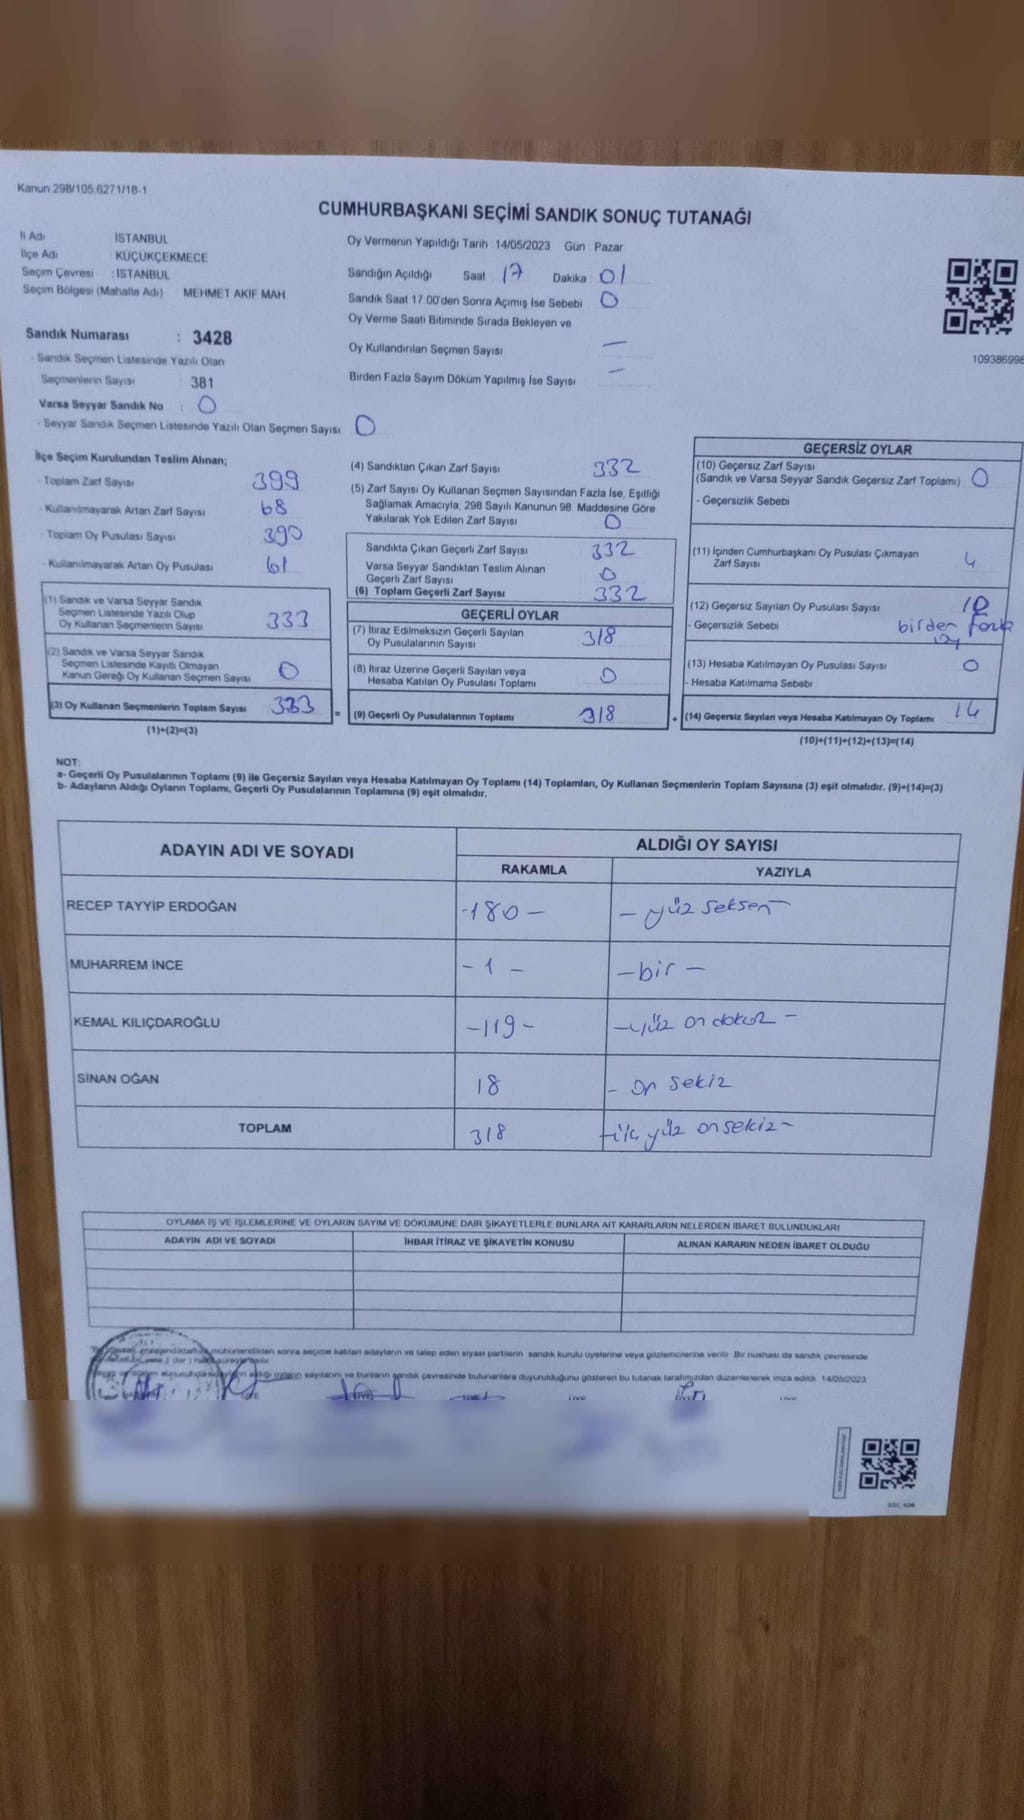 Kanun 298/105.6271/18-1
CUMHURBAŞKANI SEÇİMİ SANDIK SONUÇ TUTANAĞI
İl Adı İSTANBUL
İlçe Adı KÜÇÜKÇEKMECE
Seçim Çevresi : İSTANBUL
Seçim Bölgesi (Mahalle Adı) MEHMET AKİF MAH
Oy Vermenin Yapıldığı Tarih 14/05/2023 Gün Pazar
Sandığın Açıldığı Saat 17 Dakika 01
Sandık Saat 17 00'den Sonra Açımış İse Sebebi 0
Oy Verme Saati Bitiminde Sırada Bekleyen ve
Oy Kullandırılan Seçmen Sayısı —
Birden Fazla Sayım Döküm Yapılmış İse Sayısı —
109386998
Sandık Numarası : 3428
- Sandık Seçmen Listesinde Yazılı Olan
Seçmenlerin Sayısı : 381
Varsa Seyyar Sandık No : 0
- Seyyar Sandık Seçmen Listesinde Yazılı Olan Seçmen Sayısı 0
İlçe Seçim Kurulundan Teslim Alınan;
- Toplam Zarf Sayısı 399
- Kullanılmayarak Artan Zarf Sayısı 68
- Toplam Oy Pusulası Sayısı 390
- Kullanılmayarak Artan Oy Pusulası 61
(1) Sandık ve Varsa Seyyar Sandık
Seçmen Listesinde Yazılı Olup
Oy Kullanan Seçmenlerin Sayısı 333
(2) Sandık ve Varsa Seyyar Sandık
Seçmen Listesinde Kayıtlı Olmayan
Kanun Gereği Oy Kullanan Seçmen Sayısı 0
(3) Oy Kullanan Seçmenlerin Toplam Sayısı 333
(1)+(2)=(3)
(4) Sandıktan Çıkan Zarf Sayısı 332
(5) Zarf Sayısı Oy Kullanan Seçmen Sayısından Fazla İse, Eşitliği
Sağlamak Amacıyla, 298 Sayılı Kanunun 98. Maddesine Göre
Yakılarak Yok Edilen Zarf Sayısı 0
Sandıkta Çıkan Geçerli Zarf Sayısı 332
Varsa Seyyar Sandıktan Teslim Alınan
Geçerli Zarf Sayısı 0
(6) Toplam Geçerli Zarf Sayısı 332
GEÇERLİ OYLAR
(7) İtiraz Edilmeksizin Geçerli Sayılan
Oy Pusulalarının Sayısı 318
(8) İtiraz Üzerine Geçerli Sayılan veya
Hesaba Katılan Oy Pusulası Toplamı 0
= (9) Geçerli Oy Pusulalarının Toplamı 318
GEÇERSİZ OYLAR
(10) Geçersiz Zarf Sayısı
(Sandık ve Varsa Seyyar Sandık Geçersiz Zarf Toplamı) 0
- Geçersizlik Sebebi
(11) İçinden Cumhurbaşkanı Oy Pusulası Çıkmayan
Zarf Sayısı 4
(12) Geçersiz Sayılan Oy Pusulası Sayısı 10
- Geçersizlik Sebebi birden fazla
oy
(13) Hesaba Katılmayan Oy Pusulası Sayısı 0
- Hesaba Katılmama Sebebi
+ (14) Geçersiz Sayılan veya Hesaba Katılmayan Oy Toplamı 14
(10)+(11)+(12)+(13)=(14)
NOT:
a- Geçerli Oy Pusulalarının Toplamı (9) ile Geçersiz Sayılan veya Hesaba Katılmayan Oy Toplamı (14) Toplamları, Oy Kullanan Seçmenlerin Toplam Sayısına (3) eşit olmalıdır. (9)+(14)=(3)
b- Adayların Aldığı Oyların Toplamı, Geçerli Oy Pusulalarının Toplamına (9) eşit olmalıdır.
ADAYIN ADI VE SOYADI ALDIĞI OY SAYISI
RAKAMLA YAZIYLA
RECEP TAYYİP ERDOĞAN -180- - yüz seksen -
MUHARREM İNCE - 1 - - bir -
KEMAL KILIÇDAROĞLU -119- - yüz on dokuz -
SİNAN OĞAN 18 - on sekiz
TOPLAM 318 - üç yüz onsekiz -
OYLAMA İŞ VE İŞLEMLERİNE VE OYLARIN SAYIM VE DÖKÜMÜNE DAİR ŞİKAYETLERLE BUNLARA AİT KARARLARIN NELERDEN İBARET BULUNDUKLARI
ADAYIN ADI VE SOYADI İHBAR İTİRAZ VE ŞİKAYETİN KONUSU ALINAN KARARIN NEDEN İBARET OLDUĞU
mühürlendikten sonra seçime katılan adayların ve talep eden siyasi partilerin sandık kurulu üyelerine veya gözlemcilerine verilir. Bir nüshası da sandık çevresinde
aldığı oyların sayılarını ve bunların sandık çevresinde bulunanlara duyurulduğunu gösteren bu tutanak tarafımızdan düzenlenerek imza edildi. 14/05/2023